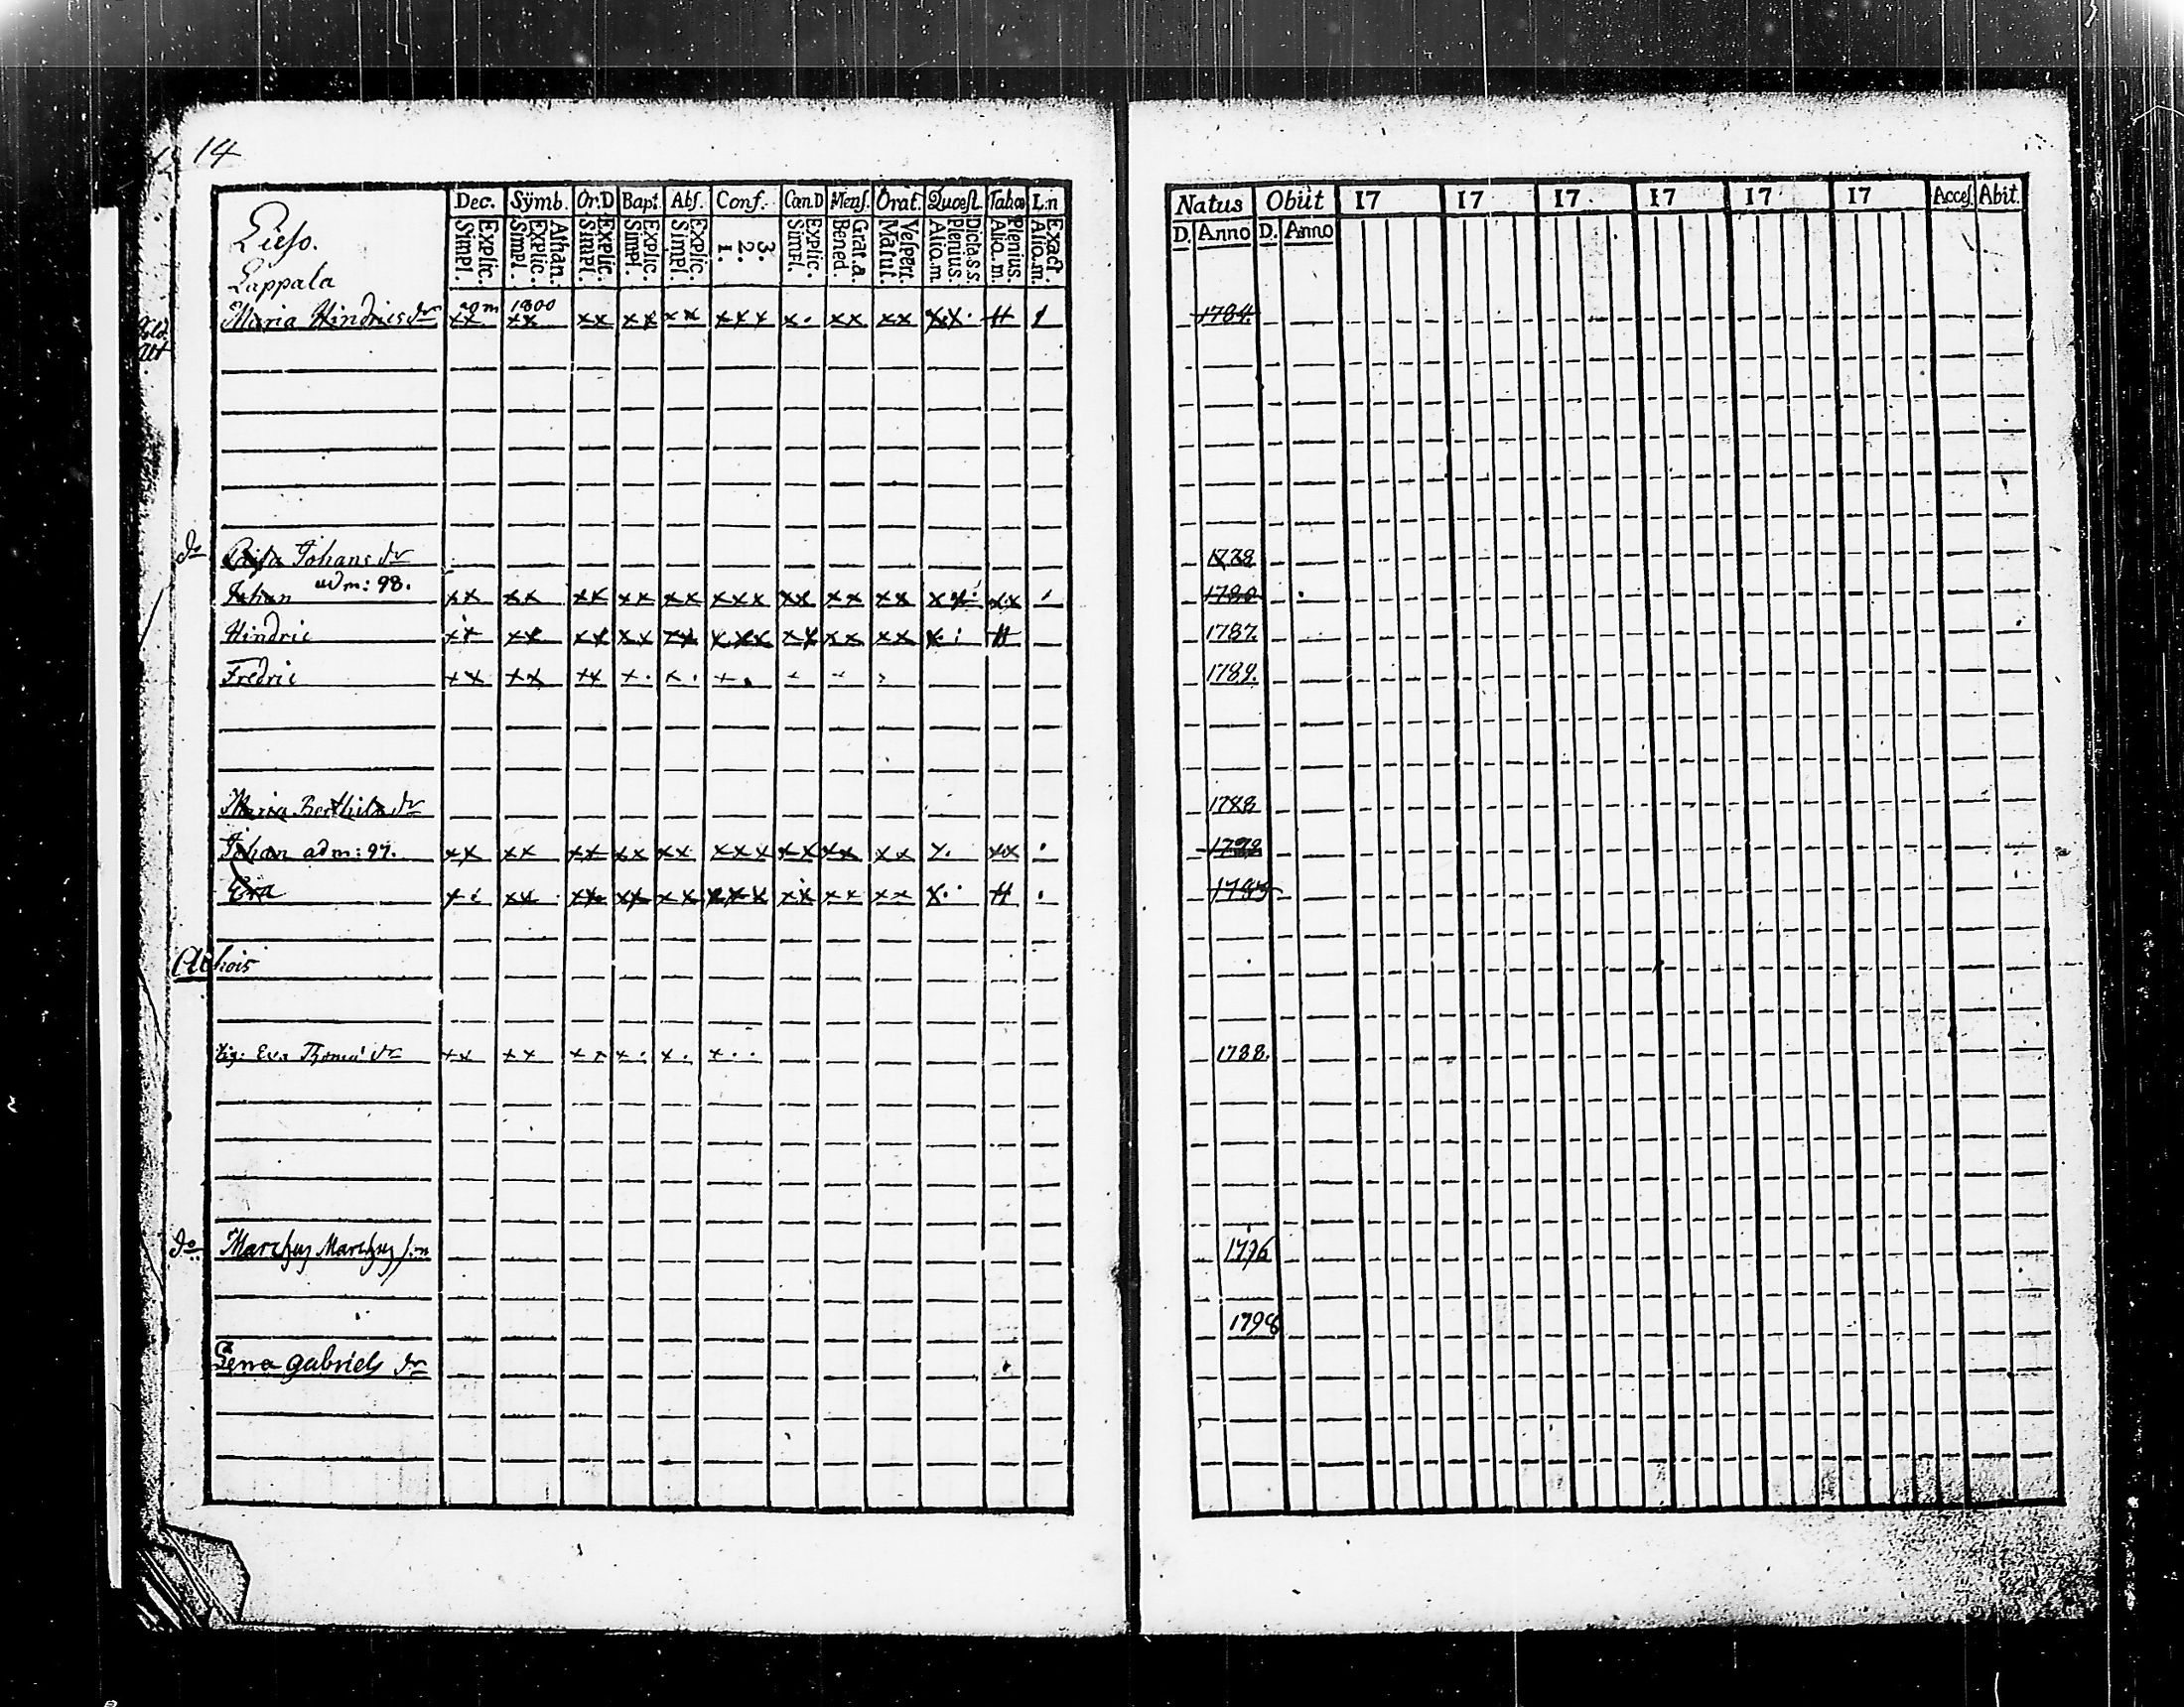 14
Dec. Symb. Or.D Bapt. Abs. Conf. Can.D Mens. Orat. Quæst. Tabæ L:n
Natus Obiit 17 17 17 17 17 17 Acces. Abit.
Explic. Simpl. Athan. Explic. Simpl. Explic. Simpl. Explic. Simpl. Explic. Simpl. 3. 2. 1. Explic. Simpl. Grat.a. Bened. Vespert. Matut. Dicta.s.s. Plenius. Alio.m. Plenius. Alio.m. Exact. Alio.m.
D. Anno D. Anno
Lappala
adm 1800
Maria Hindrics dr xx xx xx xx xx xxx x. xx xx 1784.
do Johans dr 1778
Johan adm: 98. xx xx xx xx xx xxx xx xx xx xx 1780
Hindric xx xx xx xx xx xxx xx xx xx 1787.
Fredric xx xx xx x. x. 1789.
Maria Berthils dr 1788
Johan adm: 97. xx xx xx xx xx xxx xx xx xx x. xx
Eva xx xx xx xx xxx xx xx xx x.
Eva dr xx xx xx x. x. x.. 1788.
do Marchus Marchus s:n 1796
1798
Lena gabriels dr